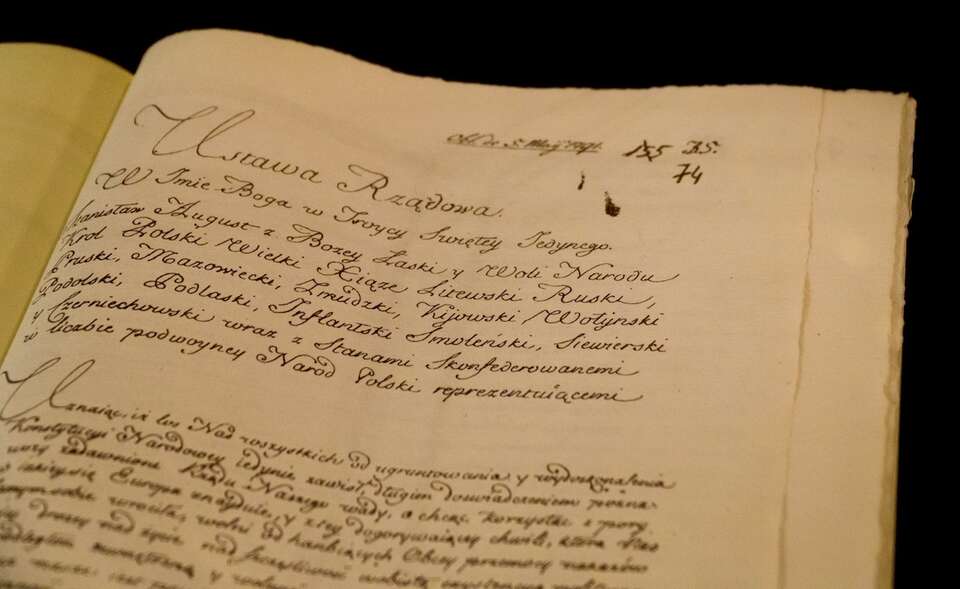 Ustawa Rządowa.
Ob. de 5. Maij 1791. 155 74
W Imie Boga w Troycy Swiętey Jedynego.
Stanisław August z Bożey Łaski y Woli Narodu
Krol Polski Wielki Xiąze Litewski Ruski,
Pruski, Mazowiecki, Zmudzki, Kijowski, Wołynski
Podolski, Podlaski, Inflantski Smolenski, Siewierski
y Czerniechowski wraz z Stanami Skonfederowanemi
w liczbie podwoyney Naród Polski reprezentuiącemi
Uznaiąc, iż los Nas wszystkich od ugruntowania y wydoskonalenia
Konstytucyi Narodowey iedynie zawisł, długim doswiadczeniem
wady zadawnione Rządu Naszego wady, a chcąc korzystać z pory,
w iakiey się Europa znayduie, y z tey dogorywaiącey chwili, która Nas
wrociła, wolni od hanbiących Obcey przemocy nakazow
drożey nad życie nad szczęśliwość osobistą